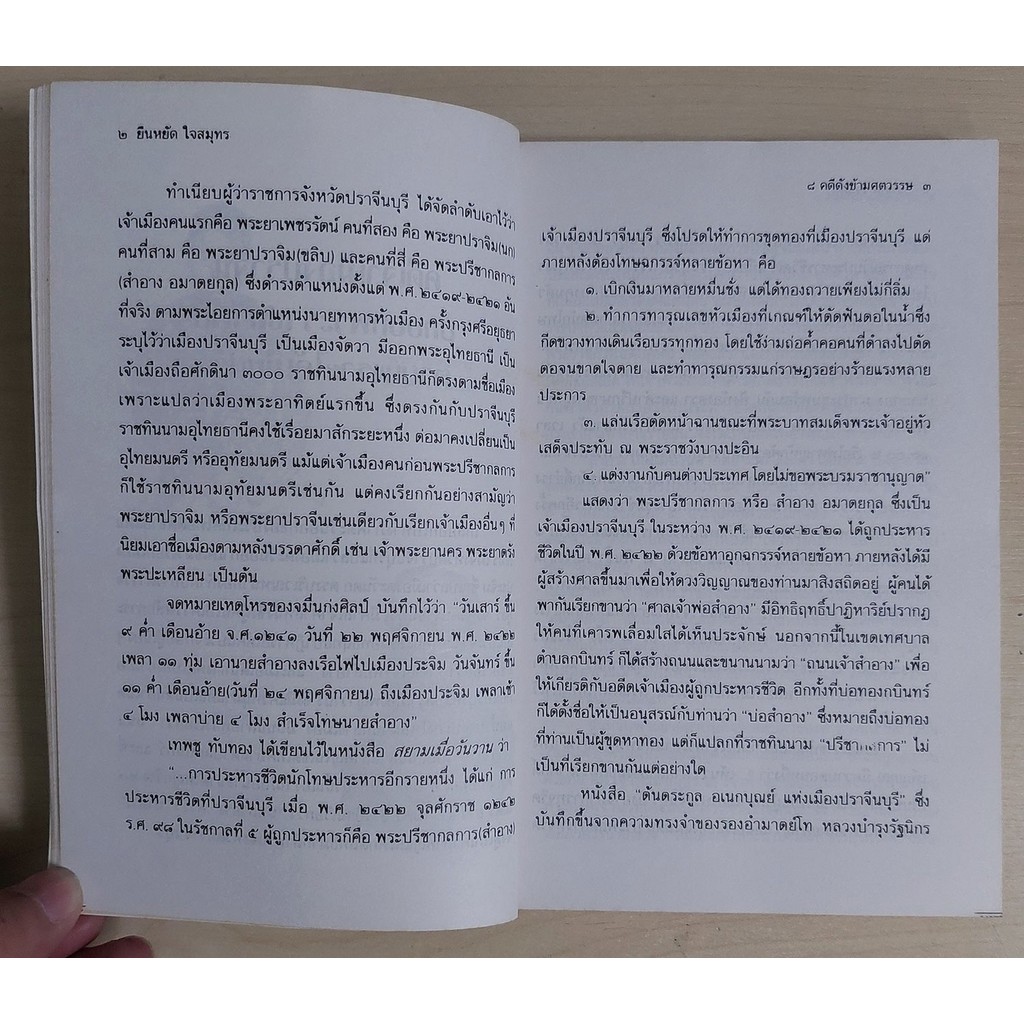 ๒ ยืนหยัด ใจสมุทร
ทำเนียบผู้ว่าราชการจังหวัดปราจีนบุรี ได้จัดลำดับเอาไว้ว่า
เจ้าเมืองคนแรกคือ พระยาเพชรรัตน์ คนที่สอง คือ พระยาปราจิม(นก)
คนที่สาม คือ พระยาปราจิม(ขลิบ) และคนที่สี่ คือ พระปรีชากลการ
(สำอาง อมาตยกุล) ซึ่งดำรงตำแหน่งตั้งแต่ พ.ศ. ๒๔๑๙-๒๔๒๑ อัน
ที่จริง ตามพระไอยการตำแหน่งนายทหารหัวเมือง ครั้งกรุงศรีอยุธยา
ระบุไว้ว่าเมืองปราจีนบุรี เป็นเมืองจัตวา มีออกพระอุไทยธานี เป็น
เจ้าเมืองถือศักดินา ๓๐๐๐ ราชทินนามอุไทยธานีก็ตรงตามชื่อเมือง
เพราะแปลว่าเมืองพระอาทิตย์แรกขึ้น ซึ่งตรงกันกับปราจีนบุรี
ราชทินนามอุไทยธานีคงใช้เรื่อยมาสักระยะหนึ่ง ต่อมาคงเปลี่ยนเป็น
อุไทยมนตรี หรืออุทัยมนตรี แม้แต่เจ้าเมืองคนก่อนพระปรีชากลการ
ก็ใช้ราชทินนามอุทัยมนตรีเช่นกัน แต่คงเรียกกันอย่างสามัญว่า
พระยาปราจิม หรือพระยาปราจีนเช่นเดียวกับเรียกเจ้าเมืองอื่นๆ ที่
นิยมเอาชื่อเมืองตามหลังบรรดาศักดิ์ เช่น เจ้าพระยานคร พระยาตรัง
พระปะเหลียน เป็นต้น
จดหมายเหตุโหรของจมื่นก่งศิลป์ บันทึกไว้ว่า "วันเสาร์ ขึ้น
๙ ค่ำ เดือนอ้าย จ.ศ.๑๒๔๑ วันที่ ๒๒ พฤศจิกายน พ.ศ. ๒๔๒๒
เพลา ๑๑ ทุ่ม เอานายสำอางลงเรือไฟไปเมืองประจิม วันจันทร์ ขึ้น
๑๑ ค่ำ เดือนอ้าย(วันที่ ๒๔ พฤศจิกายน) ถึงเมืองประจิม เพลาเช้า
๔ โมง เพลาบ่าย ๔ โมง สำเร็จโทษนายสำอาง"
เทพชู ทับทอง ได้เขียนไว้ในหนังสือ สยามเมื่อวันวาน ว่า
"...การประหารชีวิตนักโทษประหารอีกรายหนึ่ง ได้แก่ การ
ประหารชีวิตที่ปราจีนบุรี เมื่อ พ.ศ. ๒๔๒๒ จุลศักราช ๑๒๔๒
ร.ศ. ๙๘ ในรัชกาลที่ ๕ ผู้ถูกประหารก็คือ พระปรีชากลการ(สำอาง)
๘ คดีดังข้ามศตวรรษ ๓
เจ้าเมืองปราจีนบุรี ซึ่งโปรดให้ทำการขุดทองที่เมืองปราจีนบุรี แต่
ภายหลังต้องโทษฉกรรจ์หลายข้อหา คือ
๑. เบิกเงินมาหลายหมื่นชั่ง แต่ได้ทองถวายเพียงไม่กี่ลิ่ม
๒. ทำการทารุณเลขหัวเมืองที่เกณฑ์ให้ตัดฟันตอในน้ำซึ่ง
กีดขวางทางเดินเรือบรรทุกทอง โดยใช้ง่ามถ่อค้ำคอคนที่ดำลงไปตัด
ตอจนขาดใจตาย และทำทารุณกรรมแก่ราษฎรอย่างร้ายแรงหลาย
ประการ
๓. แล่นเรือตัดหน้าฉานขณะที่พระบาทสมเด็จพระเจ้าอยู่หัว
เสด็จประทับ ณ พระราชวังบางปะอิน
๔. แต่งงานกับคนต่างประเทศ โดยไม่ขอพระบรมราชานุญาต"
แสดงว่า พระปรีชากลการ หรือ สำอาง อมาตยกุล ซึ่งเป็น
เจ้าเมืองปราจีนบุรี ในระหว่าง พ.ศ. ๒๔๑๙-๒๔๒๑ ได้ถูกประหาร
ชีวิตในปี พ.ศ. ๒๔๒๒ ด้วยข้อหาอุกฉกรรจ์หลายข้อหา ภายหลังได้มี
ผู้สร้างศาลขึ้นมาเพื่อให้ดวงวิญญาณของท่านมาสิงสถิตอยู่ ผู้คนได้
พากันเรียกขานว่า "ศาลเจ้าพ่อสำอาง" มีอิทธิฤทธิ์ปาฏิหาริย์ปรากฏ
ให้คนที่เคารพเลื่อมใสได้เห็นประจักษ์ นอกจากนี้ในเขตเทศบาล
ตำบลกบินทร์ ก็ได้สร้างถนนและขนานนามว่า "ถนนเจ้าสำอาง" เพื่อ
ให้เกียรติกับอดีตเจ้าเมืองผู้ถูกประหารชีวิต อีกทั้งที่บ่อทองกบินทร์
ก็ได้ตั้งชื่อให้เป็นอนุสรณ์กับท่านว่า "บ่อสำอาง" ซึ่งหมายถึงบ่อทอง
ที่ท่านเป็นผู้ขุดหาทอง แต่ก็แปลกที่ราชทินนาม "ปรีชากลการ" ไม่
เป็นที่เรียกขานกันแต่อย่างใด
หนังสือ "ต้นตระกูล อเนกบุณย์ แห่งเมืองปราจีนบุรี" ซึ่ง
บันทึกขึ้นจากความทรงจำของรองอำมาตย์โท หลวงบำรุงรัฐนิกร